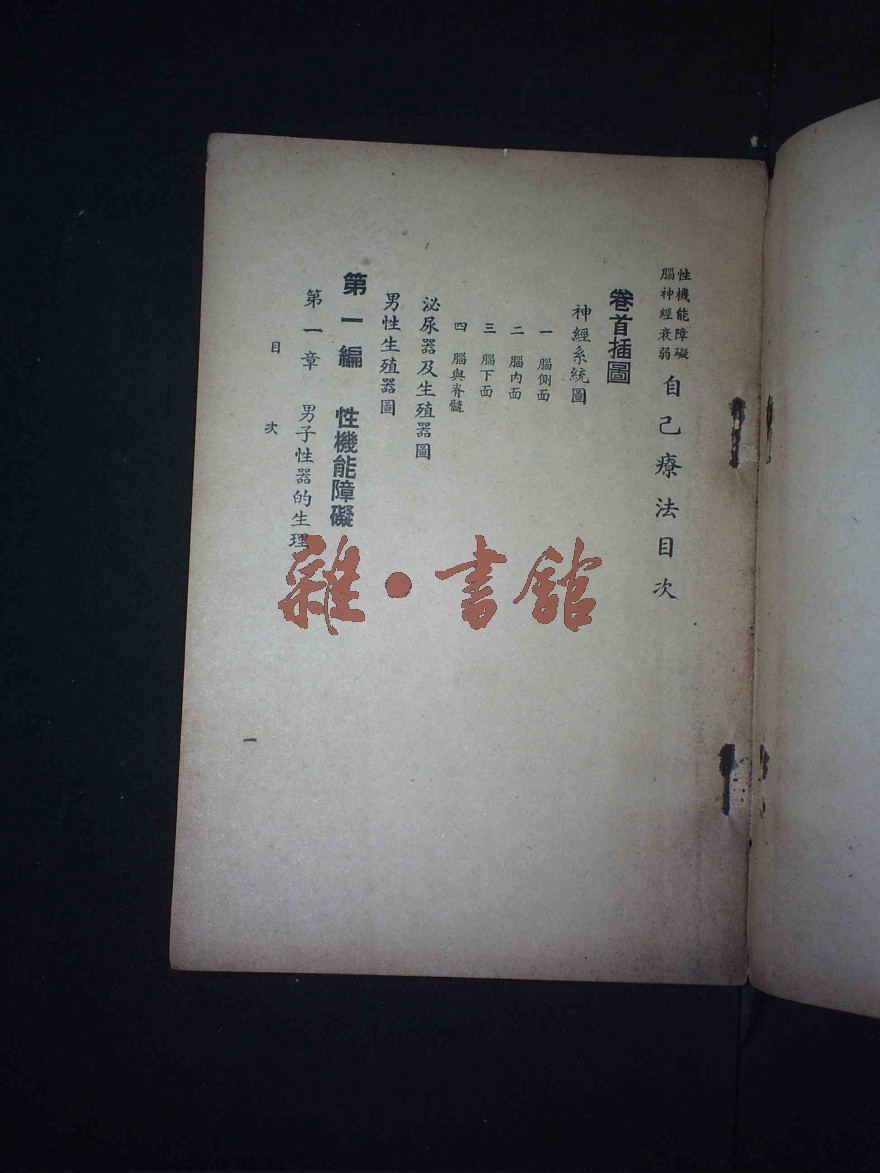 性機能障礙
腦神經衰弱
自己療法目次
卷首插圖
神經系統圖
一 腦側面
二 腦內面
三 腦下面
四 腦與脊髓
泌尿器及生殖器圖
男性生殖器圖
第一編 性機能障礙
第一章 男子性器的生理
目次
一
雜·書館